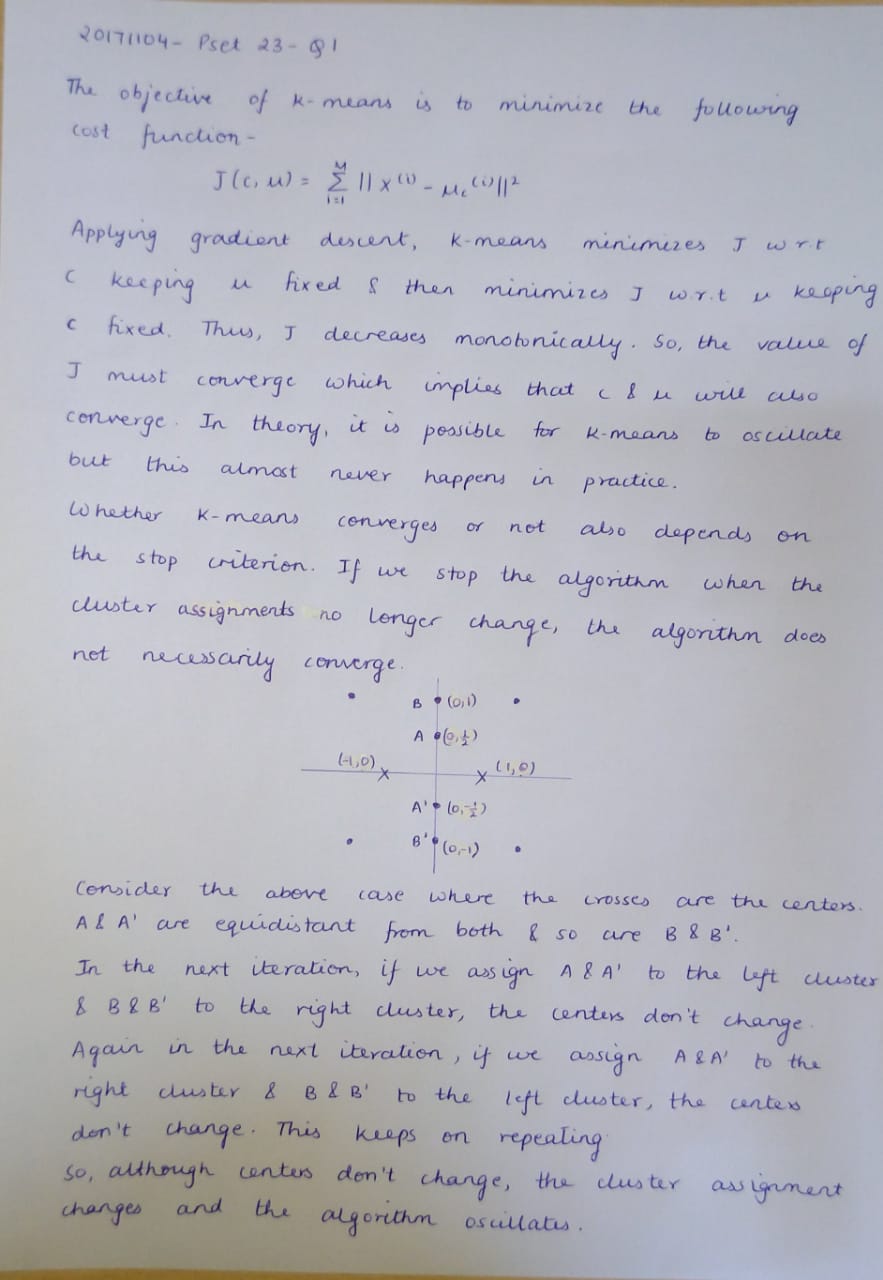 20171104 - Pset 23 - Q1
The objective of k-means is to minimize the following
cost function -
J(c, u) = M Σ i=1 || x^(i) - μ_c^(i) ||^2
Applying gradient descent, k-means minimizes J w r.t
c keeping u fixed & then minimizes J w.r.t u keeping
c fixed. Thus, J decreases monotonically. So, the value of
J must converge which implies that c & u will also
converge. In theory, it is possible for k-means to oscillate
but this almost never happens in practice.
Whether k-means converges or not also depends on
the stop criterion. If we stop the algorithm when the
cluster assignments no longer change, the algorithm does
not necessarily converge.
B (0,1)
A (0,1/2)
(-1,0) (1,0)
A' (0,-1/2)
B' (0,-1)
Consider the above case where the crosses are the centers.
A & A' are equidistant from both & so are B & B'.
In the next iteration, if we assign A & A' to the left cluster
& B & B' to the right cluster, the centers don't change.
Again in the next iteration, if we assign A & A' to the
right cluster & B & B' to the left cluster, the centers
don't change. This keeps on repeating
so, although centers don't change, the cluster assignment
changes and the algorithm oscillates.